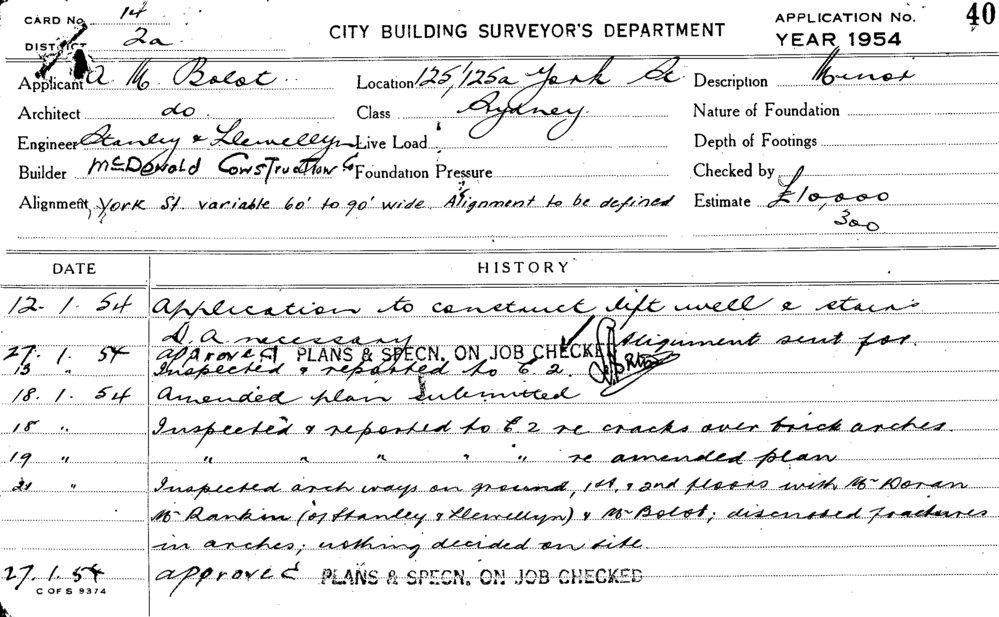 CARD No. 14
CITY BUILDING SURVEYOR'S DEPARTMENT
APPLICATION No. 40
DISTRICT 2a
YEAR 1954
Applicant A M Bolot Location 125, 125a York St Description Minor
Architect do Class Sydney Nature of Foundation
Engineer Stanley & Llewellyn Live Load Depth of Footings
Builder McDonald Construction Co Foundation Pressure Checked by
Alignment York St. variable 60' to 90' wide. Alignment to be defined Estimate £10,000
300
DATE HISTORY
12. 1. 54 Application to construct lift well & stairs
D. A necessary Alignment sent for.
27. 1. 54 approved PLANS & SPECN. ON JOB CHECKED
13 " Inspected & reported to C. 2.
18. 1. 54 Amended plan submitted
18 " Inspected & reported to C 2 re cracks over brick arches.
19 " " " " " " re amended plan
21 " Inspected arch ways on ground, 1st, & 2nd floors with Mr Doran
Mr Rankin (of Stanley & Llewellyn) & Mr Bolot; discussed fractures
in arches; nothing decided on site.
27. 1. 54 approved PLANS & SPECN. ON JOB CHECKED
C OF S 9374